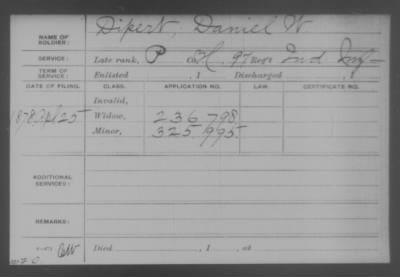 NAME OF SOLDIER: Dipert, Daniel W
SERVICE: Late rank, P Co. H. 97 Reg't Ind Inf
TERM OF SERVICE: Enlisted , 1 Discharged , 1
DATE OF FILING. CLASS. APPLICATION NO. LAW. CERTIFICATE NO.
Invalid,
1878, Apl 25 Widow, 236.798.
Minor, 325.995.
ADDITIONAL SERVICES:
REMARKS:
Died , 1 , at